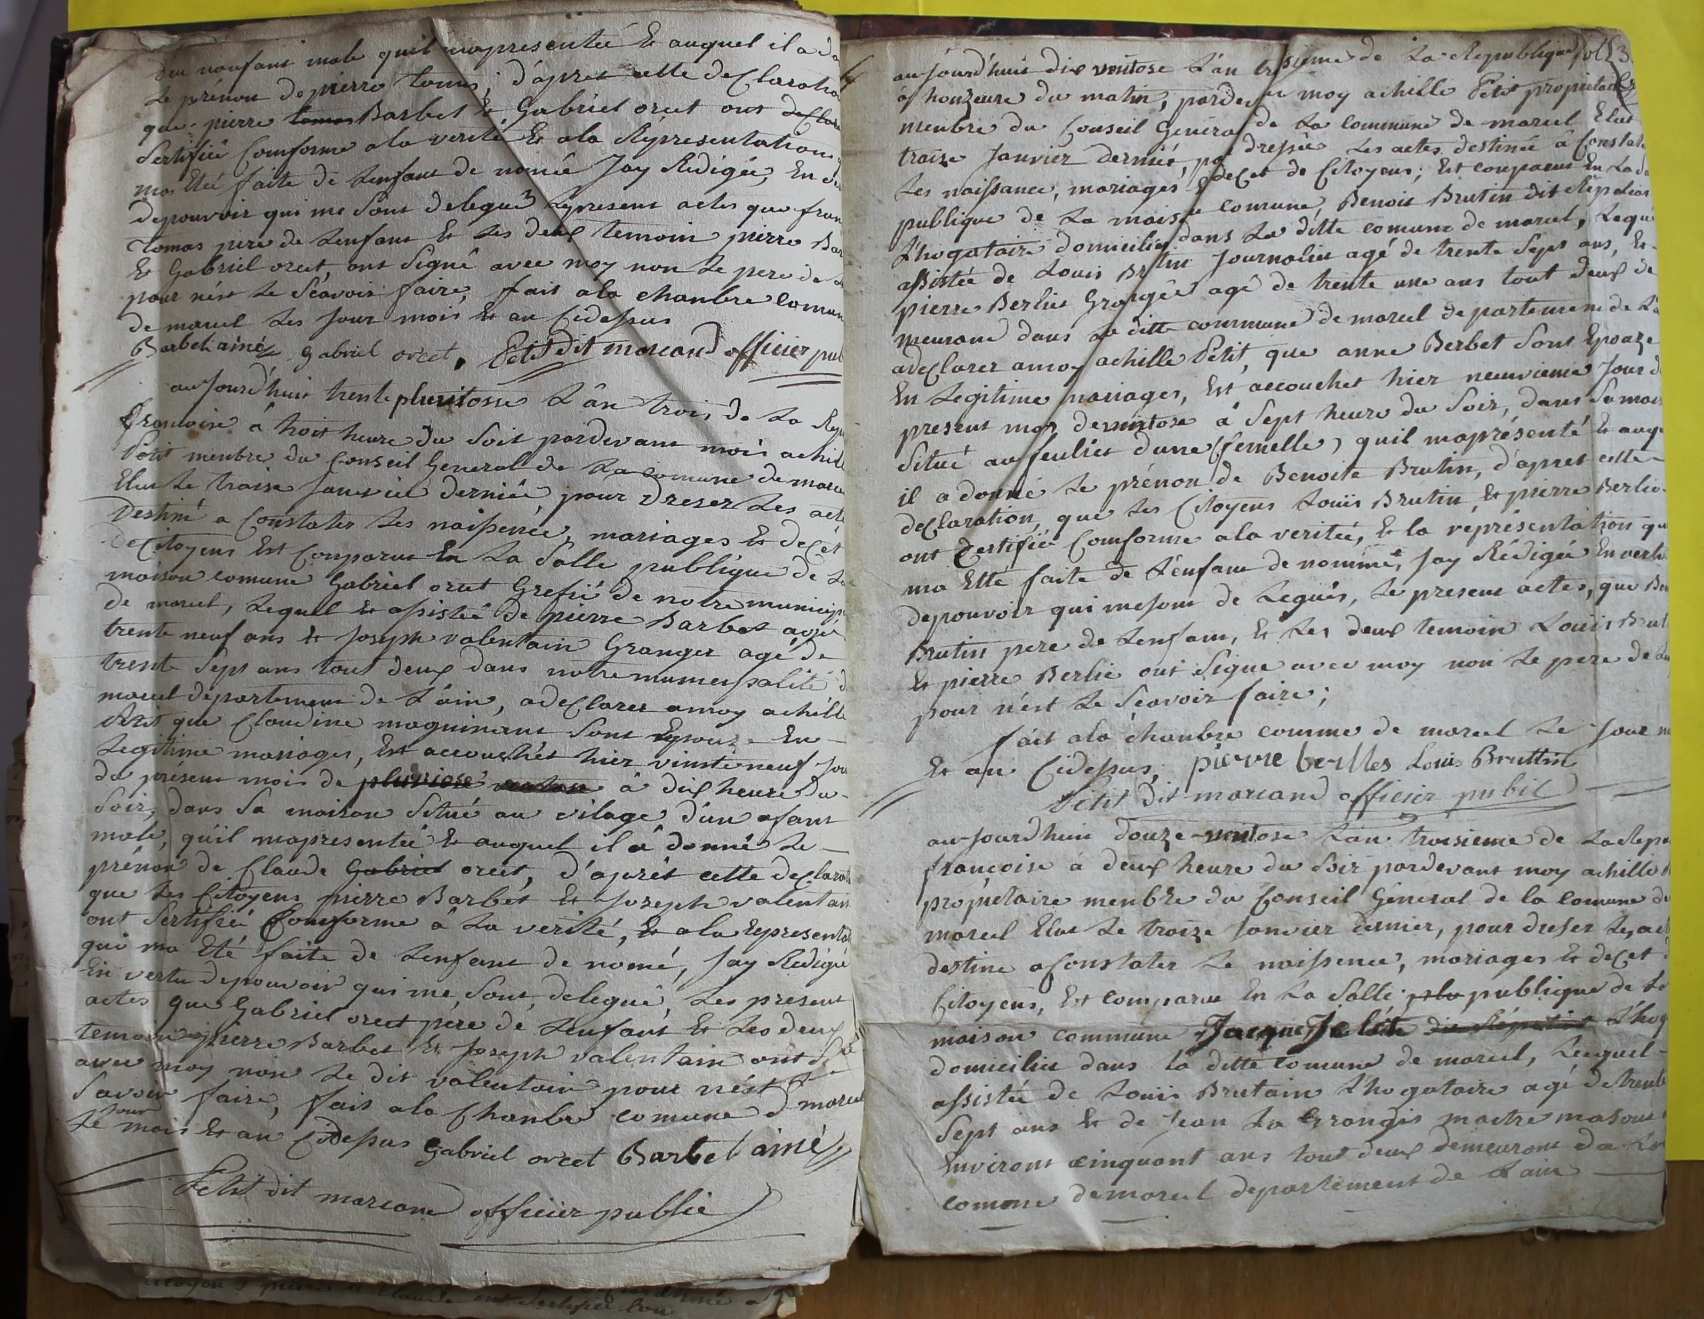 dun nanfant male quil mapresentée Et auquel il a do
Le prenom de pierre tomas; d'apres cette declaration
que pierre tomas Barbet Et Gabriel orcet ont declare
Sertifiée Comforme a la verité Et a la Répresentation
ma Eté faite de Lenfant de nomée Jay Redigée, En
depouvoir qui me sont delegués Lepresent actes que fran
Tomas pere de Lenfant Et les deux temoin pierre Bar
Et Gabriel orcet, ont Signé avec moy non Le pere de
pour nést Le Scavoir faire, fait a la chanbre comun
de marcel Les Jour mois Et an Cidessus
Barbet ainé Gabriel orcet. Petit dit marcand officier pub
aujourd'huit trente pluvitosse L'ân trois de La Repu
françoise â huit heure du Soit pardevant moi achill
Petit menbre du Conseil General de La comune de marce
Elue Le traise Janvier derniée pour Dreser Les acte
Destiné a Constater Les naissence, mariages Et decét
de Citoyens Est Comparue En La Salle publique de La
maison comune Gabriel orcet Grefié de notre municip
de marcel, Lequel Et assistée de pierre Barbet agée
trente neuf ans Et Joseph valentain Granger agé de
trente Sept ans tout deux dans notre municipalité d
marcel departement de L'ain, a declarer a moy achille
Petit que Claudine maquinant Sont Epouze En
Legitime mariages, Est accouchét hier vinte neuf Jou
du présent mois de pluviose ventose â dix heure du
Soir, dans Sa maison Situé au vilage d'un afant
male, quil mapresentée Et auquel il â donné Le
prénon de Claude Gabriel orcet, d'aprêt cette declarat
que les Citoyens pierre Barbet Et Jozeph valentain
ont Sertifiée Comforme â La verité, Et a la Represent
qui ma Eté faite de Lenfant de nomé, Jay Redigé
En vertu depouvoir qui me Sont delegué, Les present
actes que Gabriel orcet pére de Lenfant Et Les deux
temoin pierre Barbet Et Joseph valentain ont Signé
avec moy non Le dit valentain pour nést Le
Savoir faire, fait a la Chanbre comune d marcel
Le Jour mois Et an Cidessus Gabriel orcet Barbet ainé
Petit dit marcand officier public
aujourd'huit dix ventose L'an troisieme de La République fol 3
â honzeure du matin, pardevan moy achille Petit propriétaire
menbre du Conseil Général de La Commune de marcel Elue
traise Janvier derniée pour dressée Les actes destinée â Constate
Les naissance, mariages Et decet de Citoyens; Est comparut En La Sa
publique de La maison comune Benoit Brutin dit
Lhogataire domicilié dans La ditte comune de marcel, Lequel
assistée de Louis Brutin Journalier agé de trente Sept ans, Et
pierre Berlie Grangée agé de trente une ans tout deux de
meurant dans La ditte commune de marcel departement de L'a
a declarer amoy achille Petit, que anne Berbet Sont Epouze
En Legitime mariages, Est accouchet hier neuvieme Jour d
present mois de ventose â Sept heure du Soir, dans Sa mais
Situé au feulier d'une (femelle) quil maprésenté Et auqu
il a donné Le prénon de Benoite Brutin, d'apret cette
declaration, que Les Citoyens Louis Brutin, Et pierre Berlie
ont Certifiée Comforme a la veritée, Et la représentation qu
ma Etté faite de L'enfant de nommée, Jay Rédigée En vertu
depouvoir qui me sont de Legués, Le present actes, que Ben
Brutin pere de Lenfant, Et Les deux temoin Louis Brut
Et pierre Berlie ont Signe avec moy non Le pere de Len
pour nést Le Scavoir faire;
fait a la chanbre comune de marcel Le Jour m
Et an Cidessus; pierre berlles Louis Bruttin
Petit dit marcand officier publi
aujourdhuit douze ventose L'an troisieme de La Repu
françoise a deux heure du Soir pardevant moy achille
propietaire menbre du Conseil Géneral de la Comune de
marcel Elue Le traize Janvier dernier, pour dreser Les act
destine a Constater Le naissence, mariages Et decet
Citoyens, Est comparue En La Salle publique de La
maison commune Jacque Lhog
domicilié dans la ditte Comune de marcel, Lequel
assistée de Louis Brutain Lhogataire agé de trente
Sept ans Et de Jean La Grangis maitre masont
Environt cinquant ans tout deux demeurant da La
comune de marcel departement de Lain